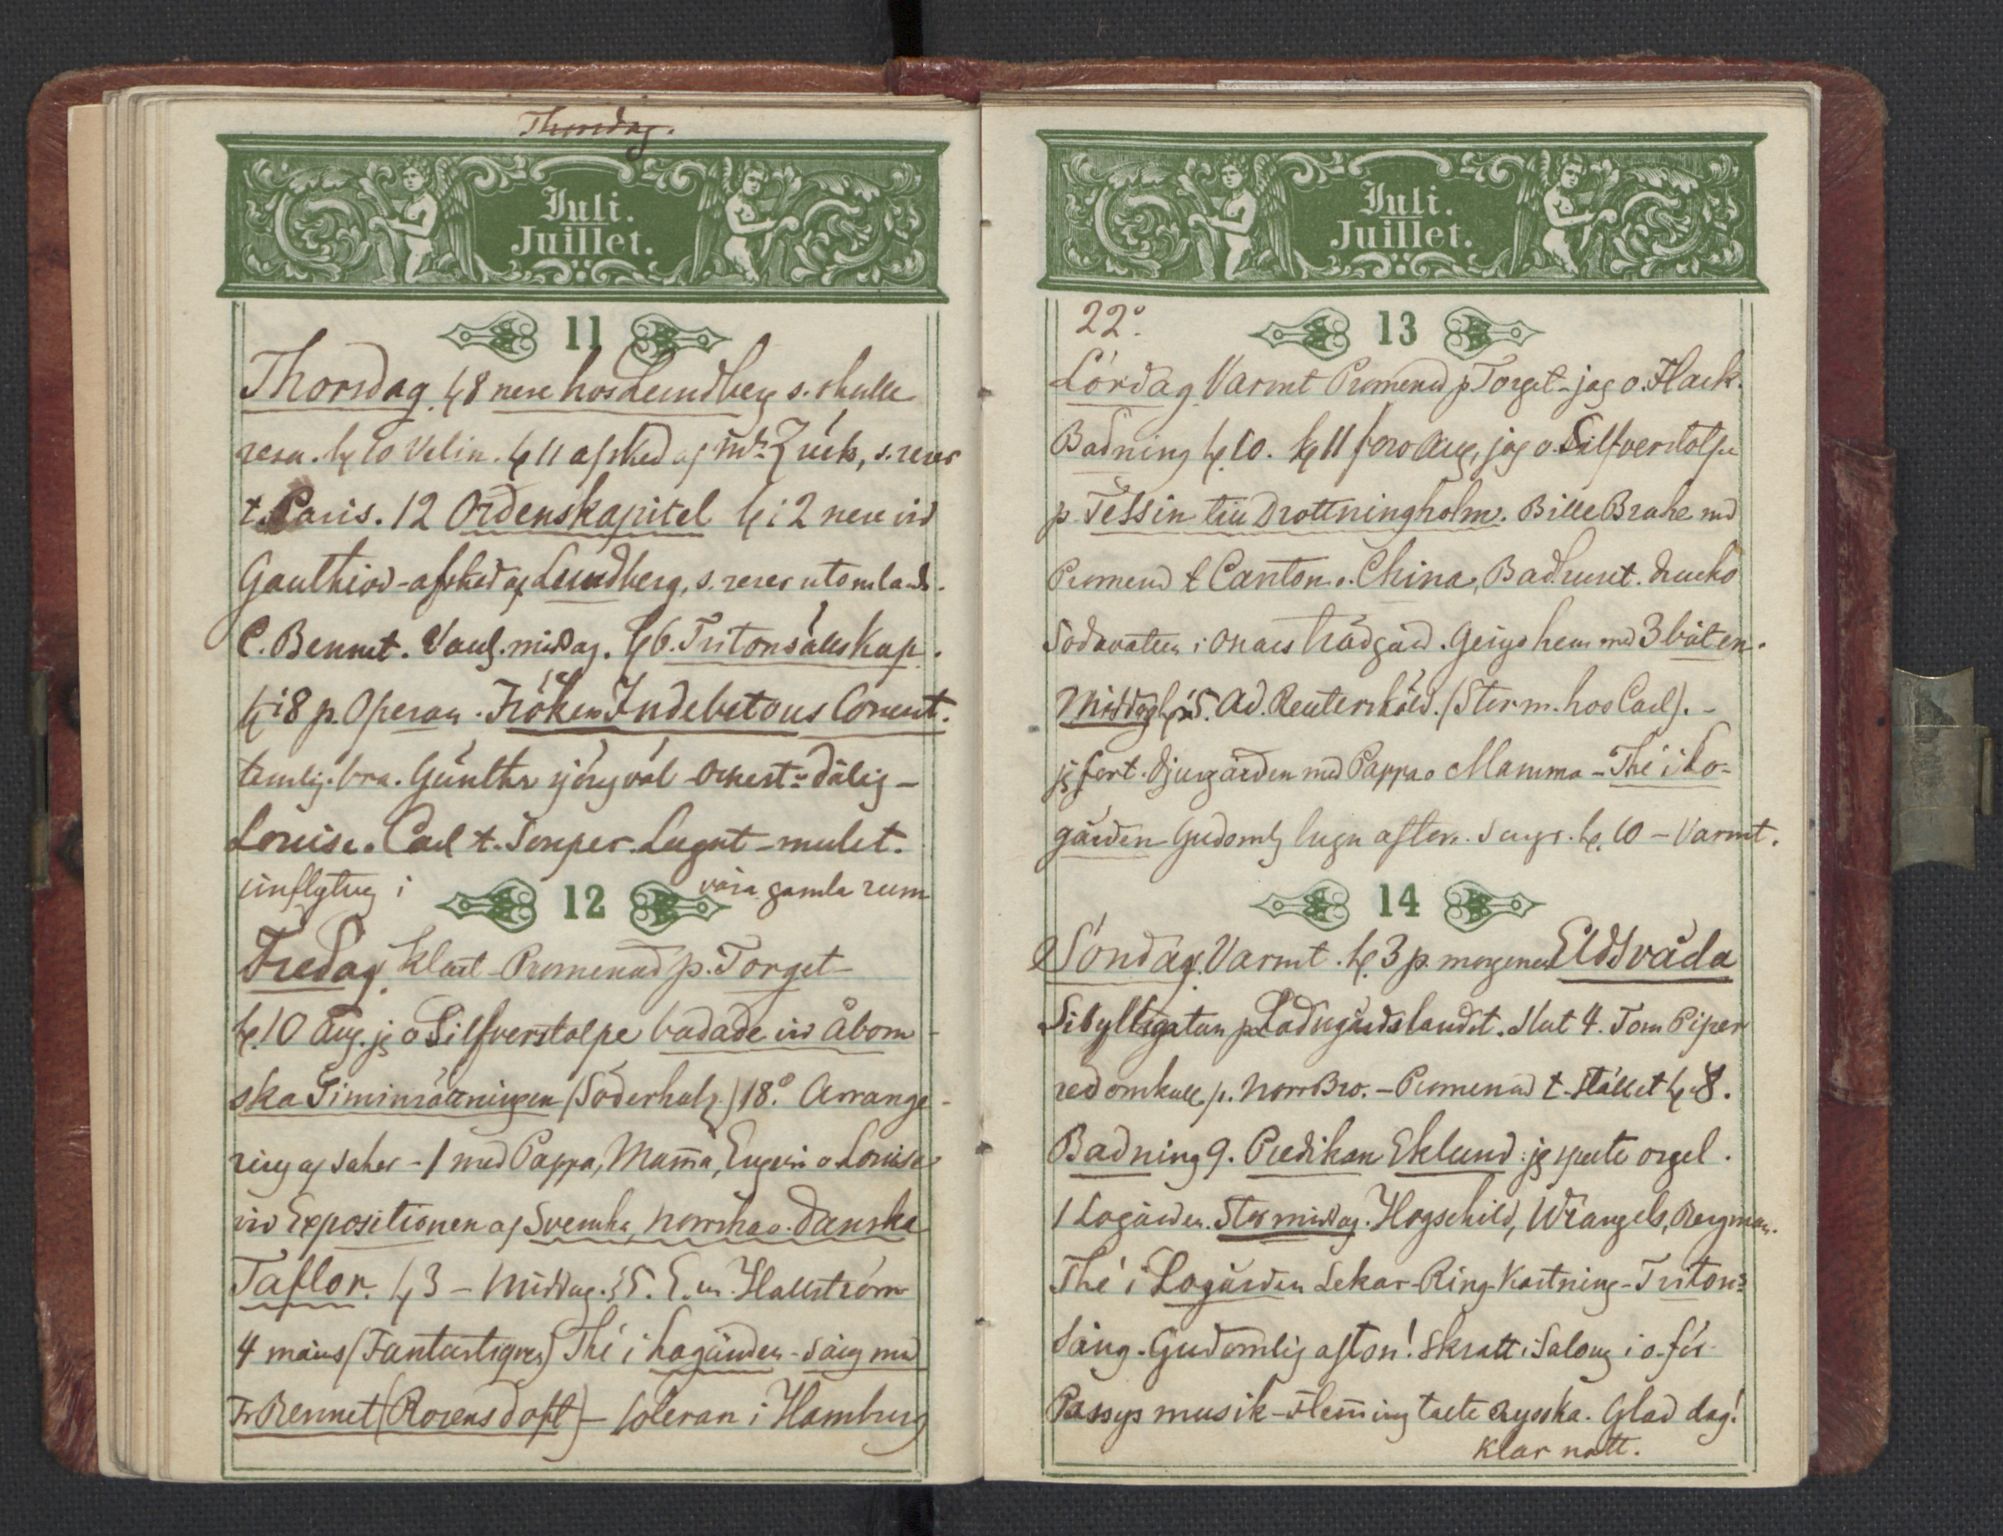 Thorsdag.
Juli.
Juillet.
11
Thorsdag. kl 8 nere hos Lundberg s. skulle
resa. kl 10 Velin. kl 11 afsked af Zück, s. reser
t. Paris. 12 Ordenskapitel kl ½ 2 nere vid
Gauthiod - afsked af Lundberg, s. reser utomlands.
C. Bennet. Vanl. middag. kl 6. Tritonsällskap.
kl ½ 8 p. Operan. Fröken Indebetous Concert.
temlig. bra. Günther sjöng väl - Orkest:n dålig -
Louise o. Carl t. Souper. Lugnt - mulet.
uinflytug i våra gamla rum
12
Fredag. klart - Promenad p. Torget -
kl. 10 Aug. jg o Silfverstolpe badade vid Åbom
ska Siminrättningen (Söderhulz.) 18.° Arrange-
ring af saker - 1 med Pappa, Mamma, Eugeni o Louise
vid Expositionen af Svenska, norrska o. Danska
Taflor. kl 3 - Middag. ½ 5. E. m. Hallström
4 mains (Fantastiques) Thé i Logården - sång med
Fr Bennet (Rosensdoft) - Coleran i Hamburg
Juli.
Juillet.
22°.
13
Lördag. Varmt Promenad p Torget - jag o. Hack.
Badning kl. 10. kl 11 foro Aug, jag o Silfverstolpe
p. Tessin till Drottningholm. Bille Brahe med
Promenad t Canton o. China, Badhuset. drucko
Sodavatten i Onars trädgård. Gingo hem med 3 båten.
Middag kl ½ 5. Ad. Reutersköld. (Stor m. hos Carl). -
jg fort. Djurgården med Pappa o Mamma - Thé i Lo-
gården Gudomlig lugn afton. Sängs. kl. 10 - Varmt.
14
Söndag. Varmt. kl. 3 p. morgonen Eldsvåda
Sibyllegatan på Ladugårdslandet. Slut 4. Tom Piper
red omkull p. NorrBro. - Promenad t. Stallet kl 8.
Badning 9. Predikan Eklund. jg spelte orgel.
1 Logården. Stor middag. Hogschild, Wrangels, Bergman.
Thé i Logården Lekar - Ring - Kastning - Triton=
Sång. Gudomlig afton! Skratt i Salong i o. för
Passys musik - Flemming talte Ryska. Glad dag!
Klar natt.